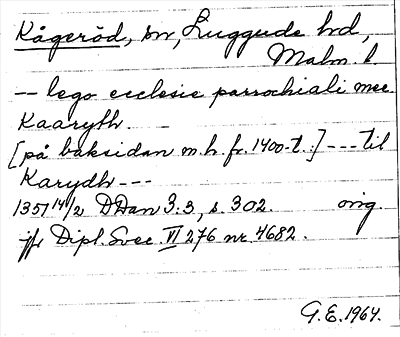 Kågeröd, sn, Luggude hd,
Malm. l
-- lego ecclesie parrochiali mee
Kaaryth.
[på baksidan m.h. fr. 1400-t.:] --- til
Karydh ---
1357 14/2 DDan 3:3, s. 302. orig.
jfr Dipl. Svec. VI 276 nr. 4682.
G.E. 1964.